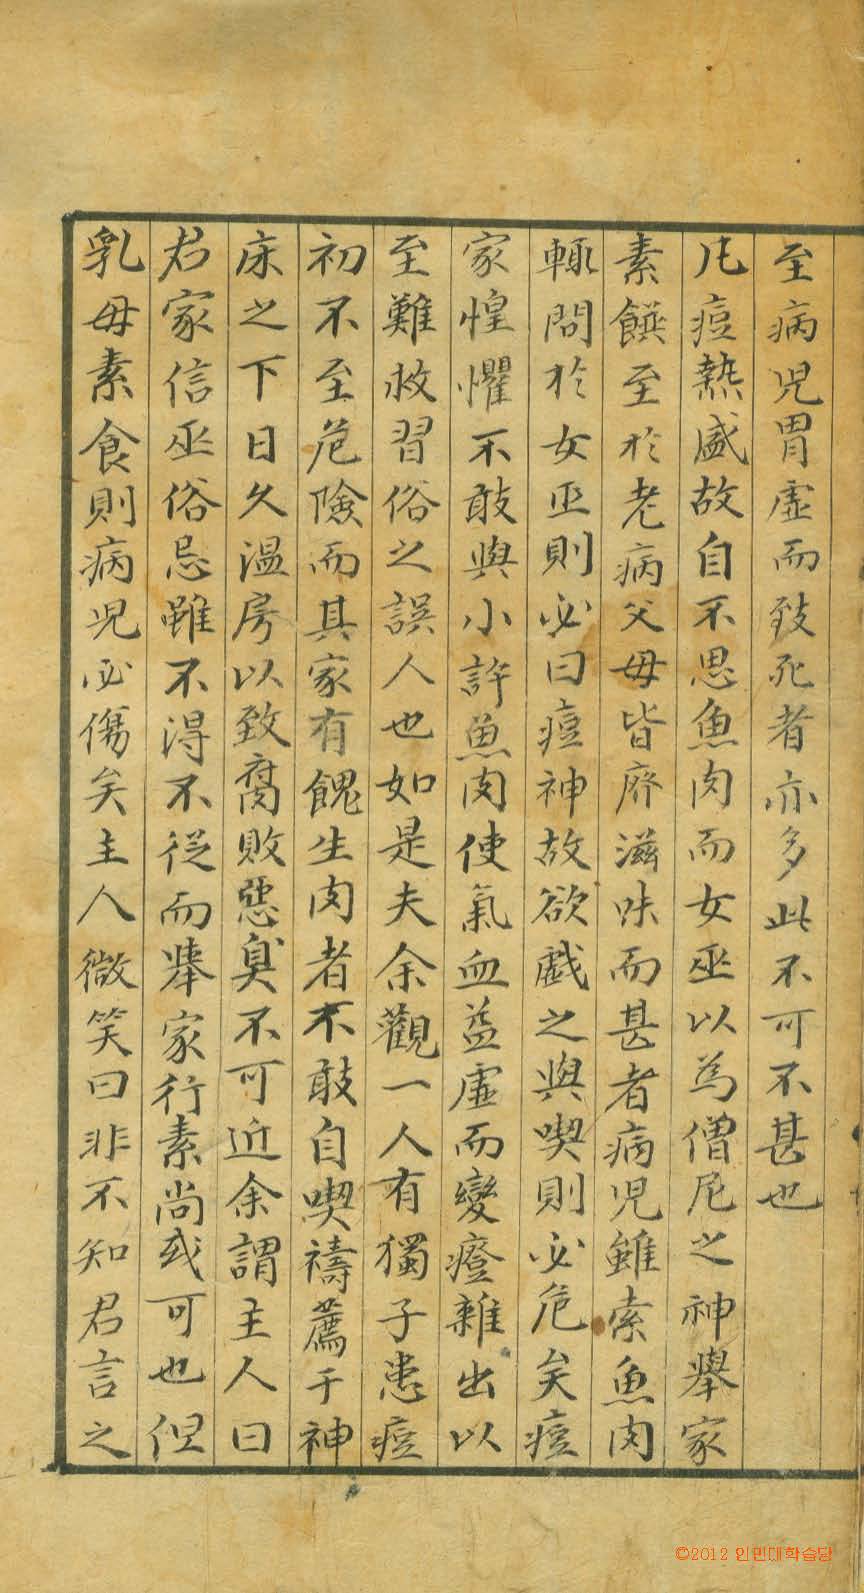 至病児胃虚而致死者亦多此不可不甚也
凡痘熱盛故自不思魚肉而女巫以為僧尼之神擧家
素饌至於老病父母皆廢滋味而甚者病児雖索魚肉
輙問於女巫則必曰痘神故欲戱之與喫則必危矣痘
家惶懼不敢與小許魚肉使氣血益虛而變癥雜出以
至難救習俗之誤人也如是夫余觀一人有獨子患痘
初不至危險而其家有餽生肉者不敢自喫禱薦于神
床之下日久溫房以致腐敗惡臭不可近余謂主人曰
君家信巫俗忌雖不得不從而擧家行素尚或可也但
乳母素食則病児必傷矣主人微笑曰非不知君言之
©2012 인민대학습당